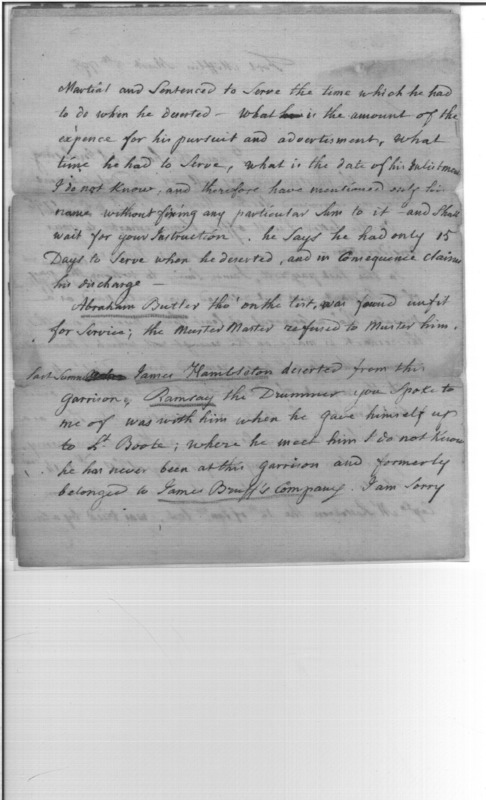 Martial and Sentenced to Serve the time which he had
to do when he deserted – What is the amount of the
expence for his pursuit and advertisment, What
time he had to Serve, what is the date of his Inlistment
I do not Know, and therefore have mentioned only his
name without fixing any particular Sum to it – and Shall
wait for your Instruction. he Says he had only 15
Days to Serve when he deserted, and in Consequence claims
his discharge –
Abraham Butler tho' on the list, was found unfit
for Service; the Muster Master refused to Muster him.
last Summer James Hambleton deserted from this
Garrison, Ramsay the Drummer you Spoke to
me of was with him when he gave himself up
to Lt. Boote; where he meet him I do not Know
he has never been at this garrison and formerly
belonged to James Bruff's Company. I am Sorry